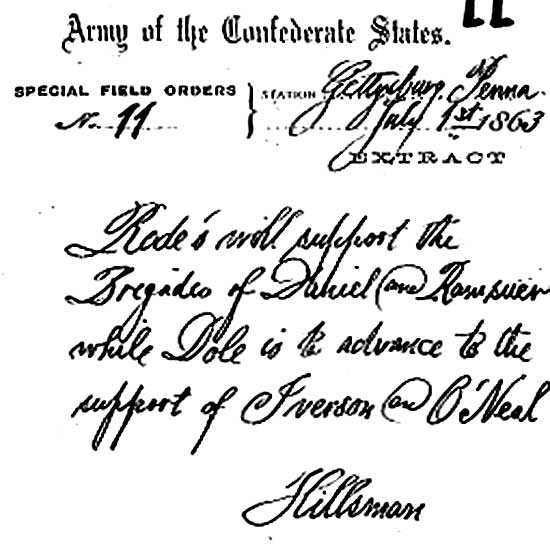 11
Army of the Confederate States.
SPECIAL FIELD ORDERS
No. 11
STATION Gettysburg, Penna.
July 1st 1863
EXTRACT
Rode's will support the
Bregades of Daniel and Ramsuer
while Dole is to advance to the
support of Iverson and O'Neal
Hillsman